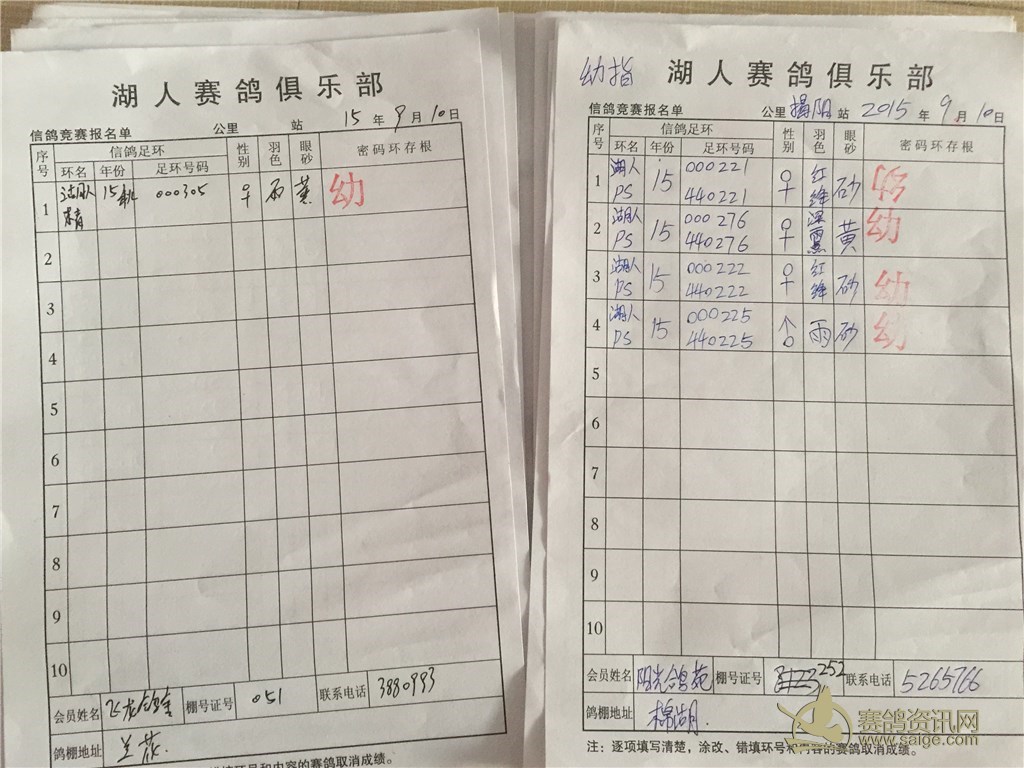 湖人赛鸽俱乐部
信鸽竞赛报名单 公里 站 15 年 9 月 10 日
序号 信鸽足环 性别 羽色 眼砂 密码环存根
环名 年份 足环号码
1 湖人 15 000305 ♀ 石 黄 幼
2
3
4
5
6
7
8
9
10
会员姓名 飞龙鸽舍 棚号证号 051 联系电话 3880993
鸽棚地址
错填环号和内容的赛鸽取消成绩。
幼指 湖人赛鸽俱乐部
信鸽竞赛报名单 公里 揭阳 站 2015 年 9 月 10 日
序号 信鸽足环 性别 羽色 眼砂 密码环存根
环名 年份 足环号码
1 湖人 PS 15 000221 440221 ♀ 红绛 砂 幼
2 湖人 PS 15 000276 440276 ♀ 黄 幼
3 湖人 PS 15 000222 440222 ♀ 红绛 砂 幼
4 湖人 PS 15 000225 440225 ♂ 雨 砂 幼
5
6
7
8
9
10
会员姓名 阳光鸽苑 棚号证号 252 联系电话 5265766
鸽棚地址 棉湖.
注：逐项填写清楚，涂改、错填环号和内容的赛鸽取消成绩。
赛鸽资讯网
www.saige.com